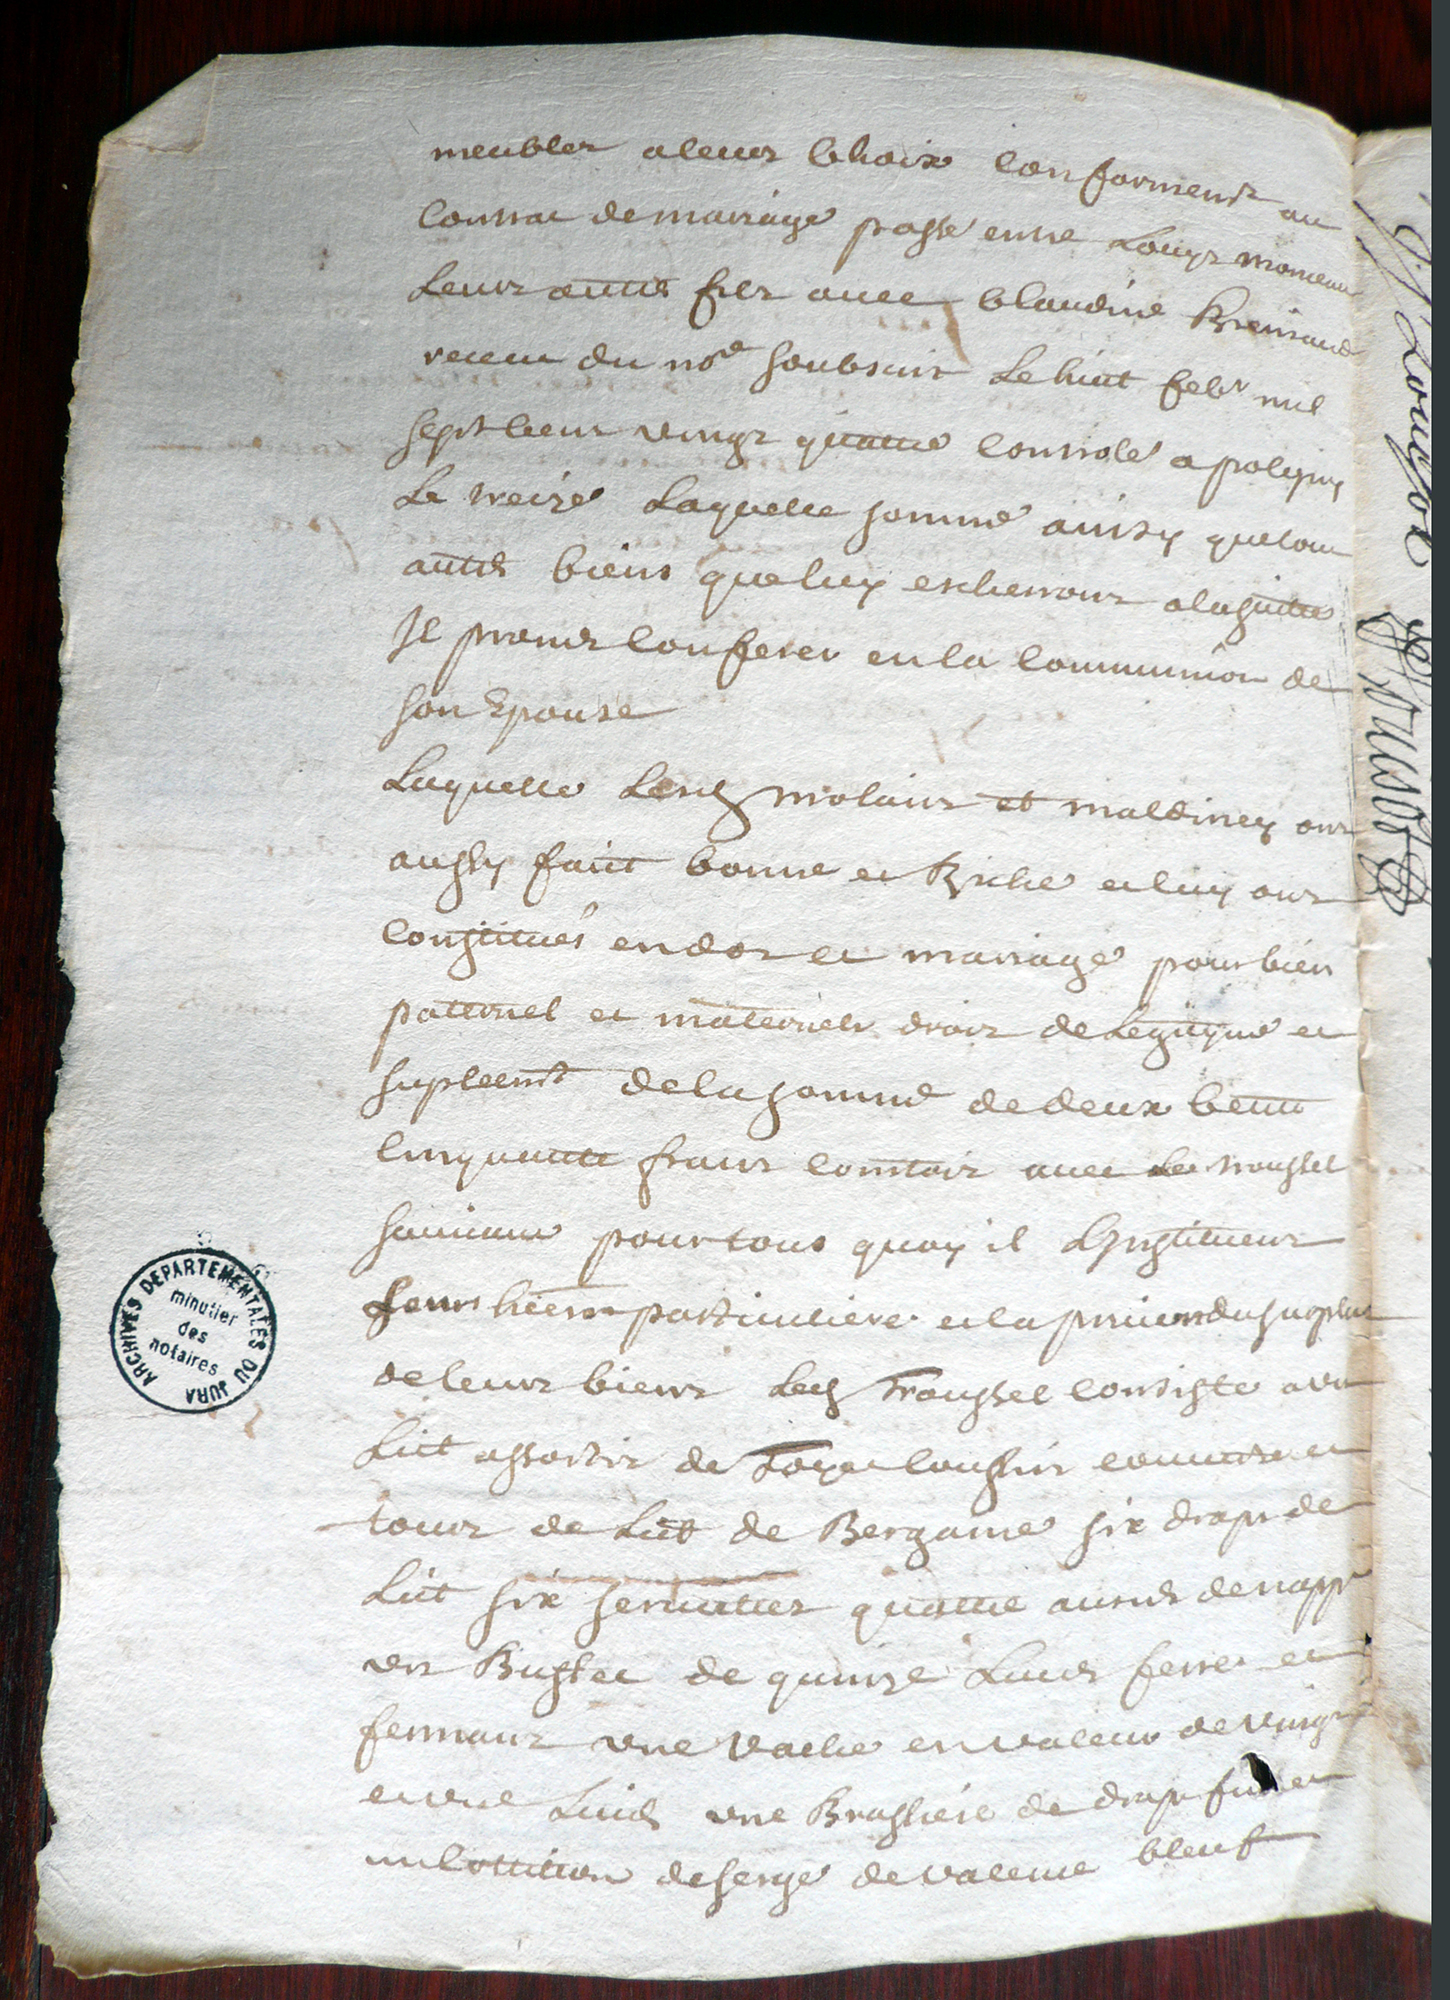 meubles a leurs choix conforment au
contrac de mariage passé entre Louys moneau
Leurs autre fils avec claudine
receu du nore soubsnt Le huit febr mil
sept cent vingt quattre controlé a poligny
Le treize Laquelle somme ainsy que tous
autres biens que luy escherront a la suitte
Il promet conferer en la communion de
son Epouse
Laquelle Lesd molain et maldiney ont
aussy fait bonne et Riche et luy ont
constitués en dot et mariage pour bien
patternel et matternels droit de Legitime et
suppleemt de la somme de deux centt
cinquantte francs comtois avec Le trousset
suivant pour tous quoy il L'Instituent
Leurs hiere particuliere et la privent du surplus
de leurs biens Led Trousset consiste a un
Lict assortir de coussin couverte et
tours de Lict de Bergame six draps de
Lict six serviettes quattre aunes de nappe
un Buffet de quinze Livres ferré et
fermant une vache en valeur de vingt
et une Livres une Brassiere de drap fin et
un cottillon de serge de valence bleuf
Louyson
ARCHIVES DEPARTEMENTALES DU JURA
minutier
des
notaires